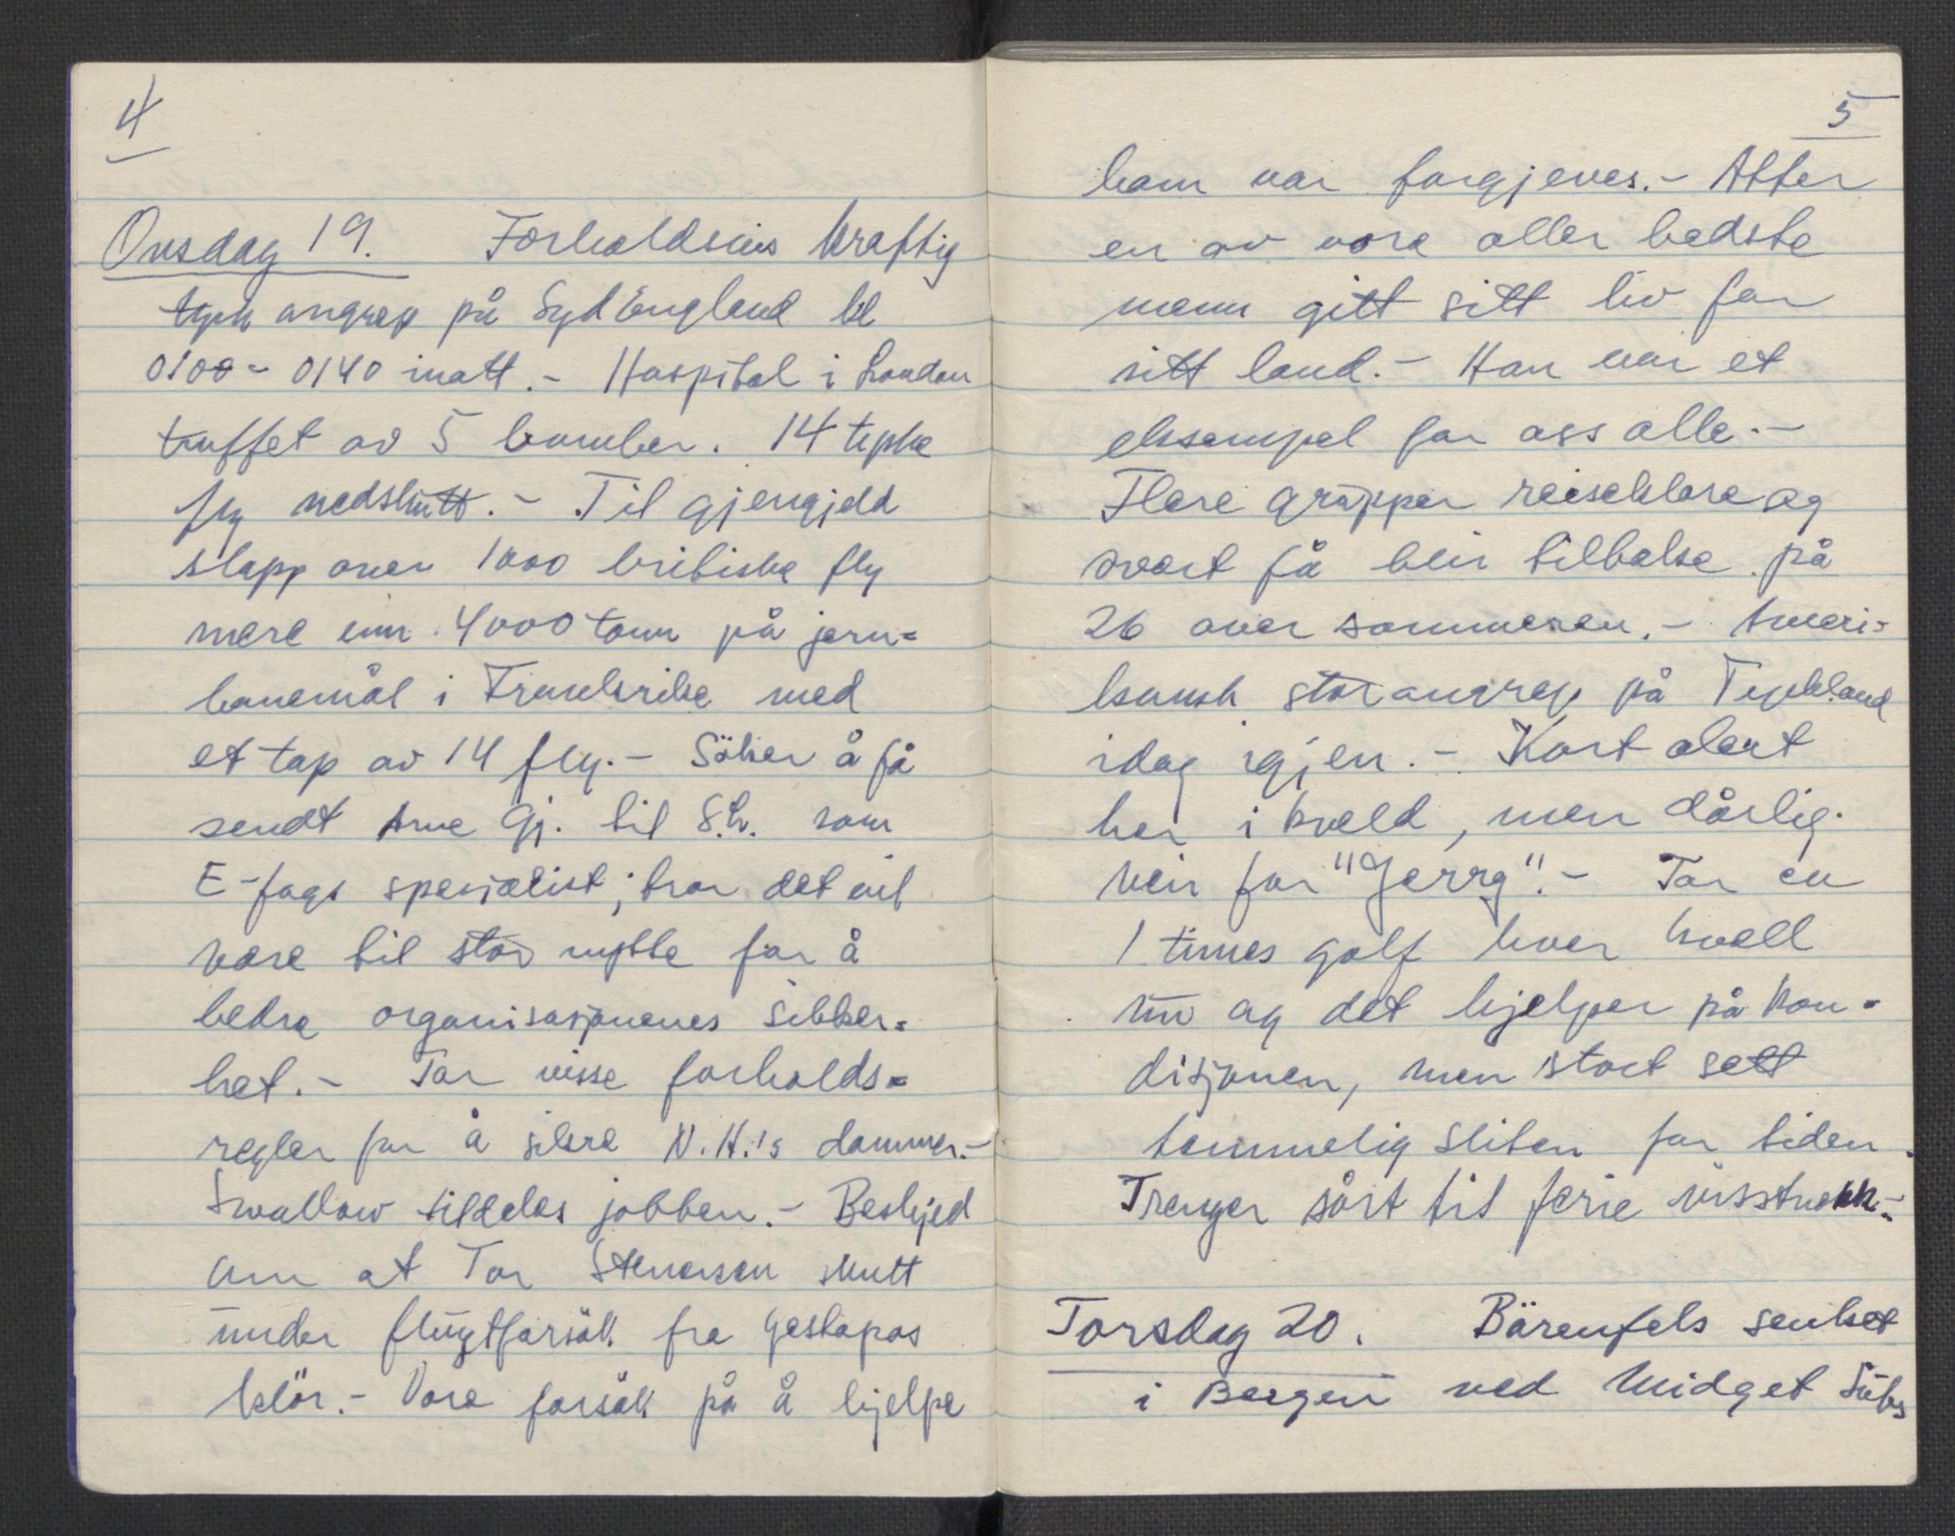 4
Onsdag 19. Forholdsvis kraftig
tysk angrep på Syd England kl
0100 - 0140 inatt. - Hospital i London
truffet av 5 bomber. 14 tyske
fly nedskutt. - Til gjengjeld
slapp over 1000 britiske fly
mere enn 4000 tonn på jern=
banemål i Frankrike med
et tap av 14 fly. - Söker å få
sendt Arne Gj. til S.L. som
E-fags spesialist; tror det vil
være til stor nytte for å
bedre organisasjonenes sikker=
het. - Tar visse forholds=
regler for å sikre N.H.'s dammer. -
Swallow tildeles jobben. - Beskjed
om at Tor Stenersen skutt
under flugtforsök fra Gestapos
klör. - Vore forsök på å hjelpe
5
ham var forgjeves. - Atter
en av vore aller bedste
menn gitt sitt liv for
sitt land. - Han var et
eksempel for oss alle. -
Flere grupper reiseklare og
svært få blir tilbake på
26 over sommeren. - Ameri=
kansk storangrep på Tyskland
idag igjen. - Kort alert
her i kveld, men dårlig
veir for "Jerry". - Tar en
1 times golf hver kveld
nu og det hjelper på kon=
disjonen, men stort sett
temmelig sliten for tiden.
Trenger sårt til ferie visstnokk. -
Torsdag 20. Bärenfels senket
i Bergen ved Midget Subs